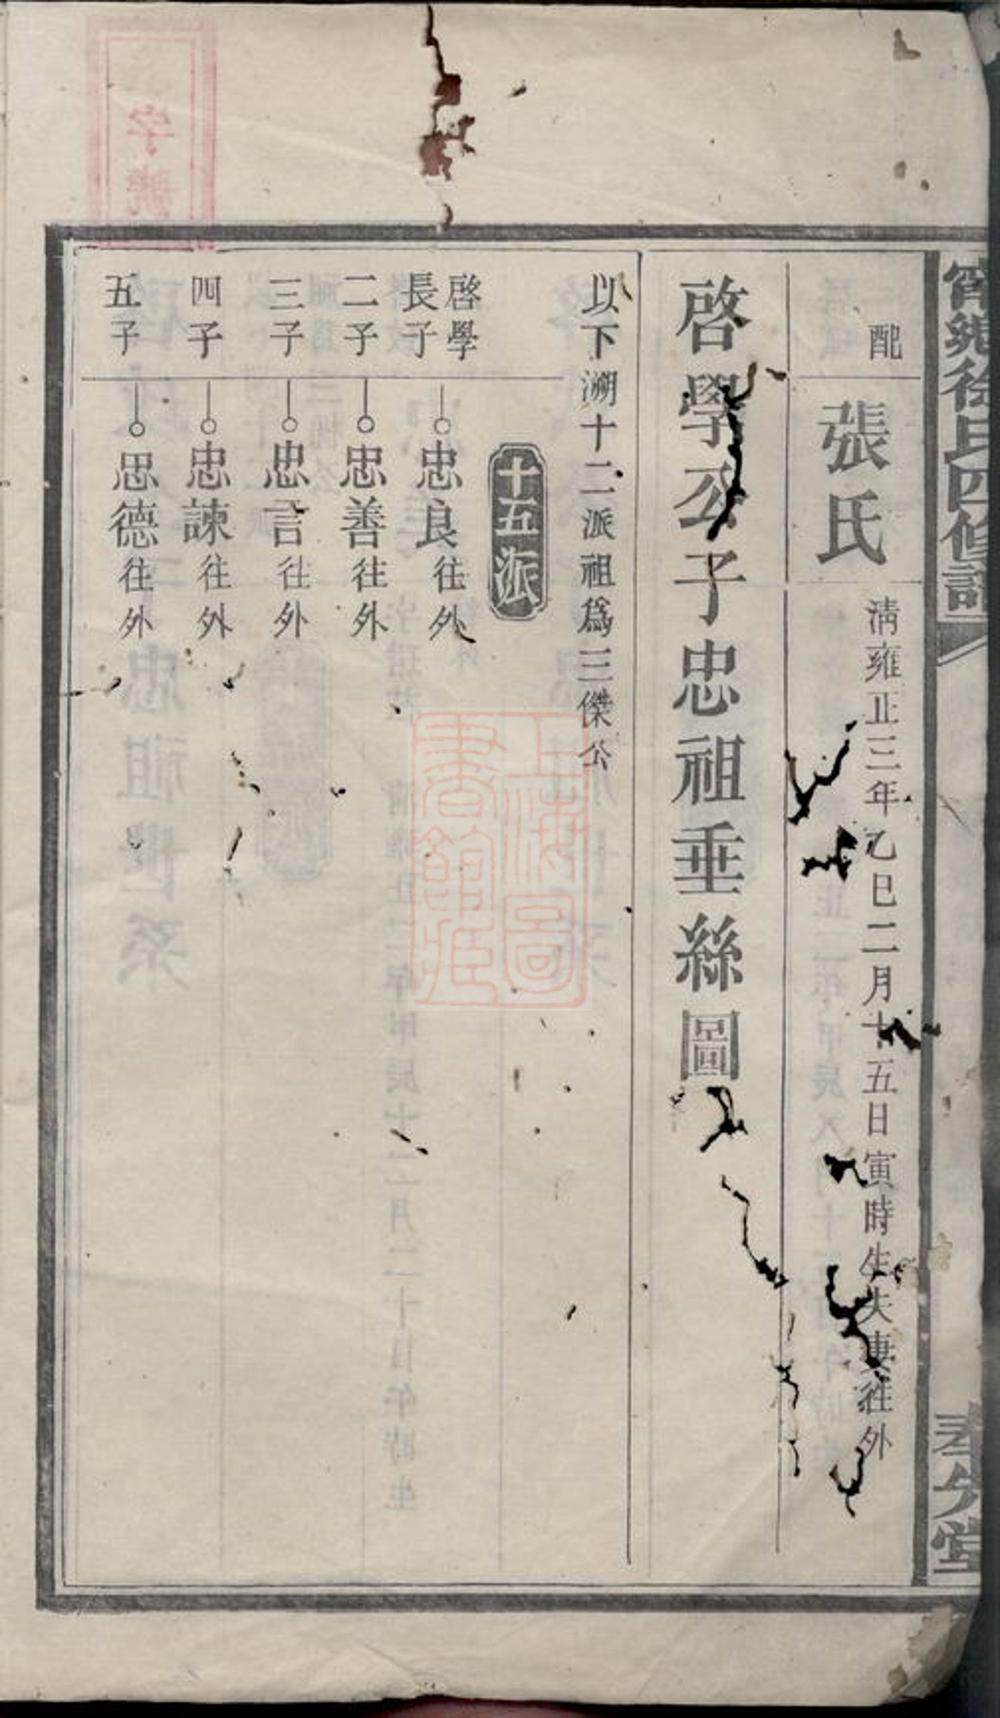 寗鄉徐氏四修譜
奉先堂
配
張氏
清雍正三年乙巳二月十五日寅時生夫妻往外
啓學公子忠祖垂絲圖
以下溯十二派祖爲三傑公
十五派
啓學
長子
忠良往外
二子
忠善往外
三子
忠言往外
四子
忠諫往外
五子
忠德往外
上海圖
書館藏
字號